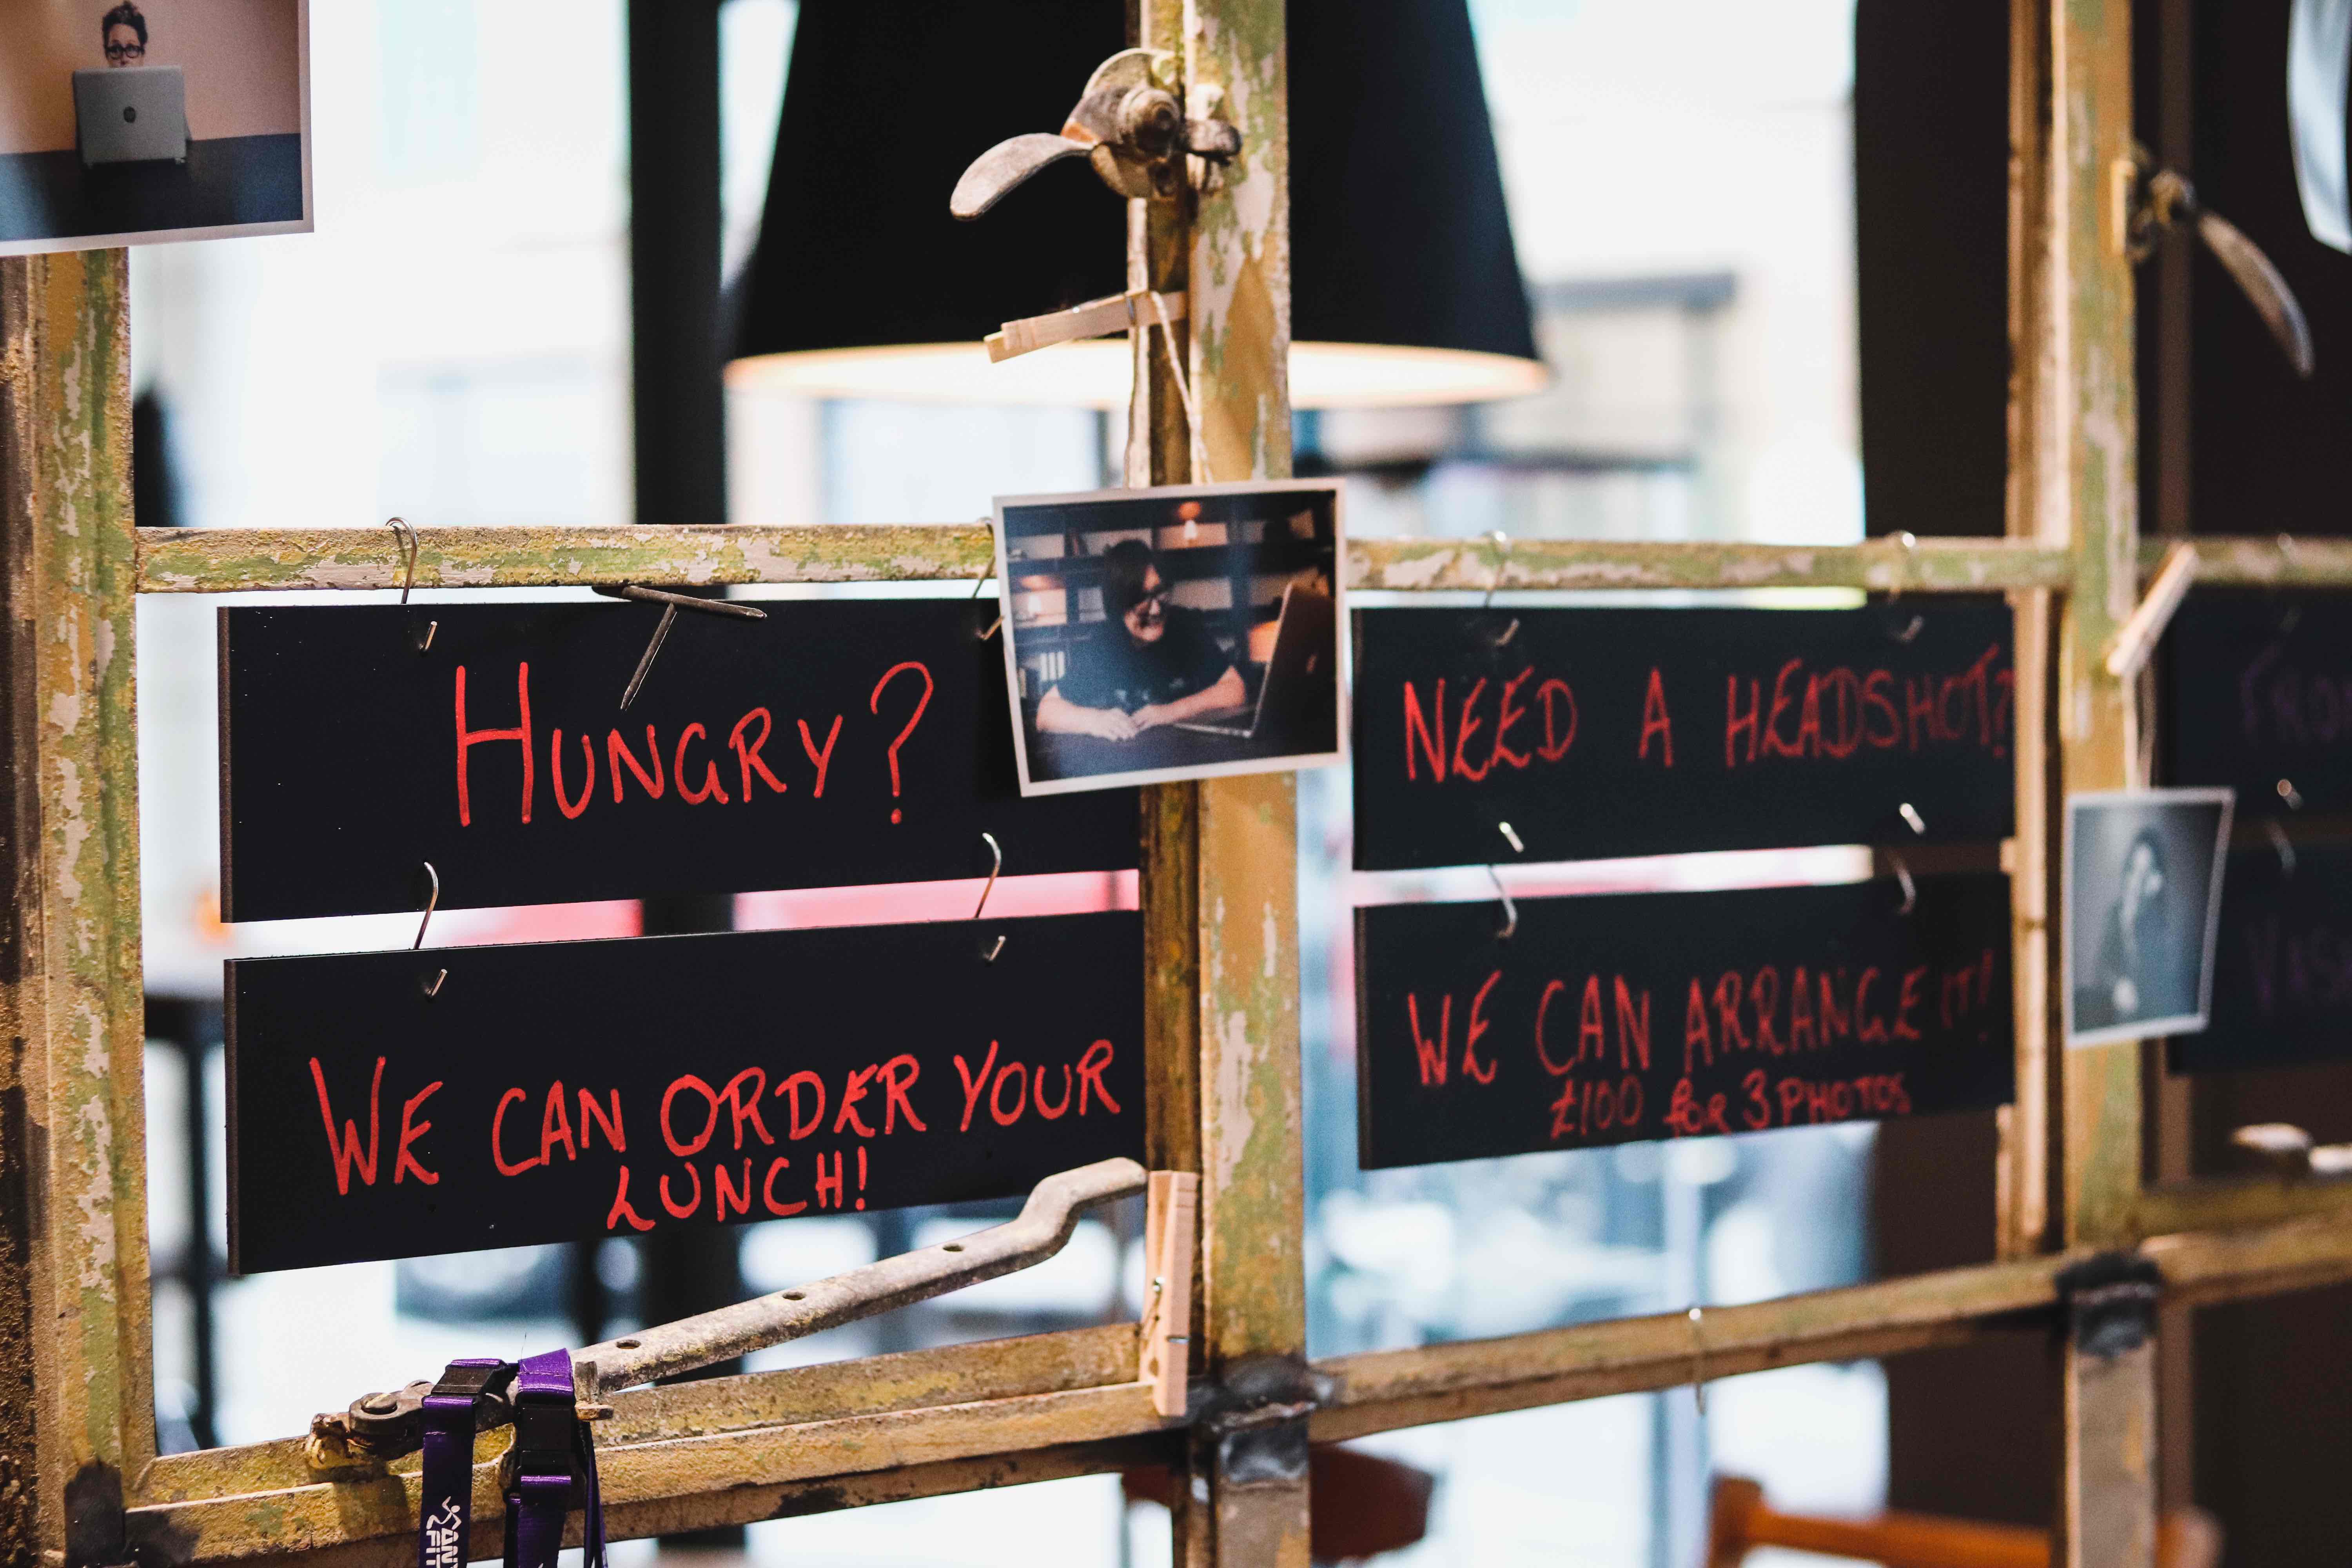 HUNGRY?
WE CAN ORDER YOUR
LUNCH!
NEED A HEADSHOT?
WE CAN ARRANGE IT!
£100 for 3 PHOTOS